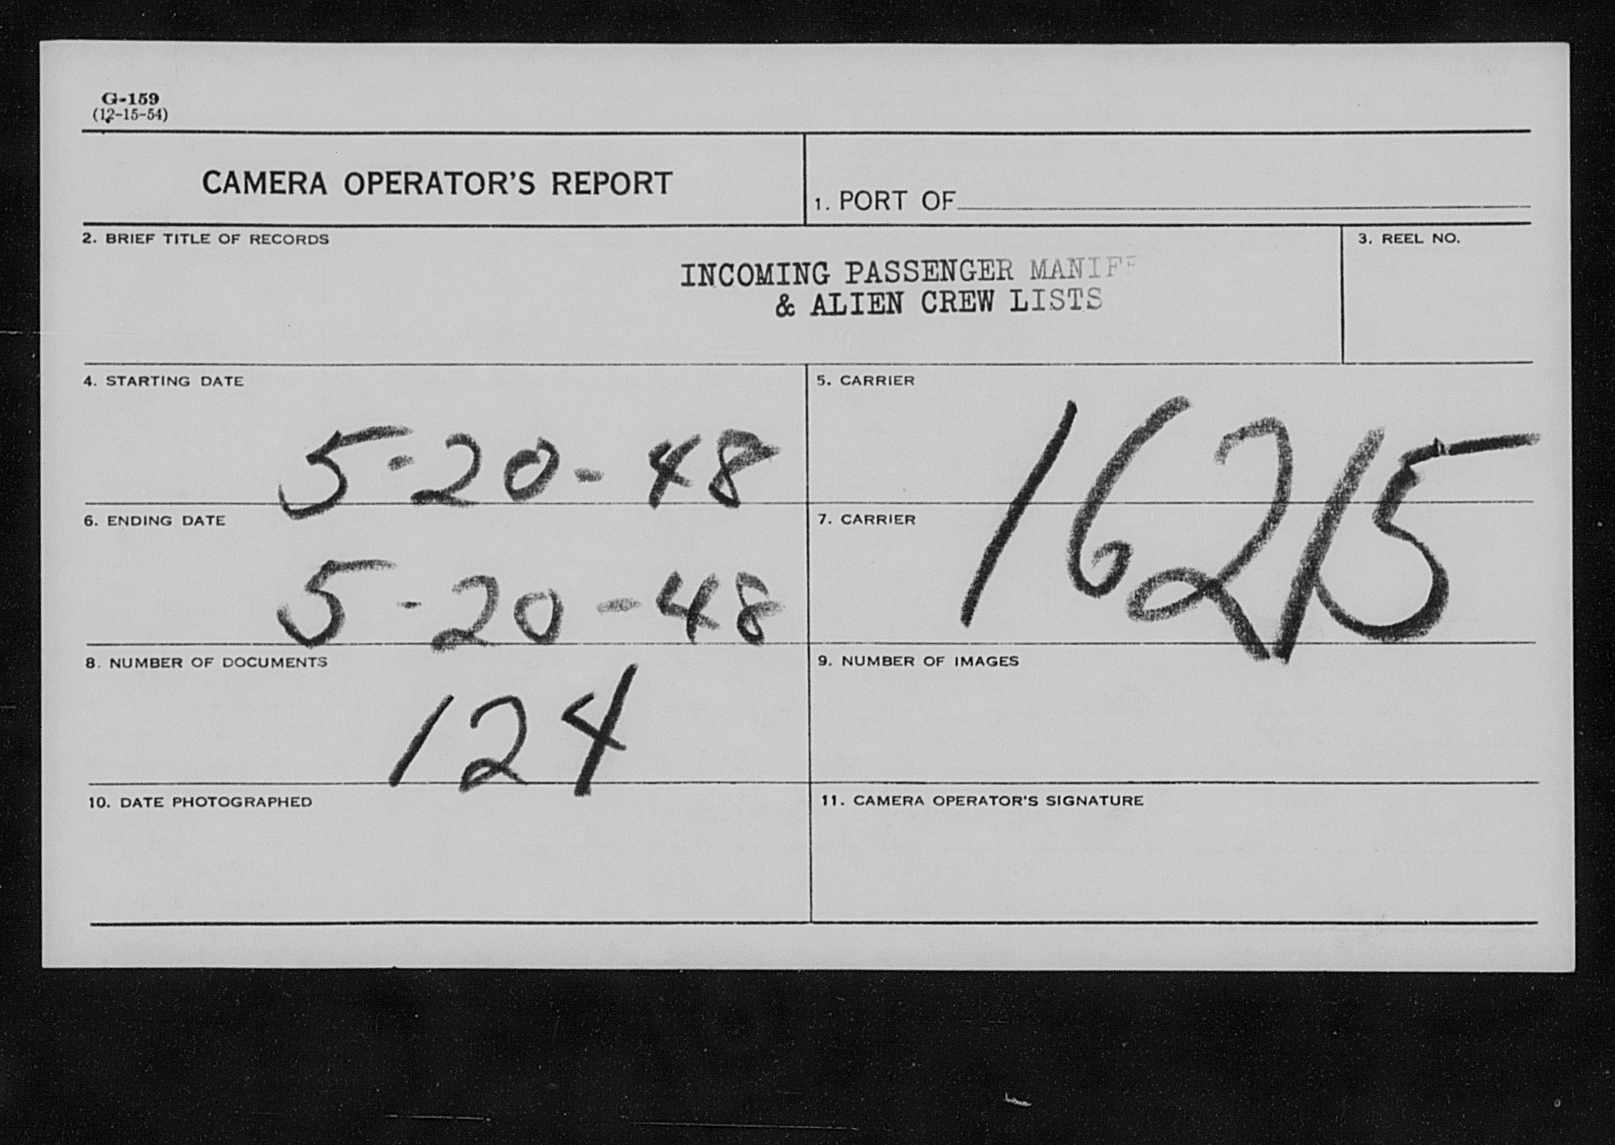 G-159
(12-15-54)
CAMERA OPERATOR'S REPORT
1. PORT OF
2. BRIEF TITLE OF RECORDS
INCOMING PASSENGER MANIF
& ALIEN CREW LISTS
3. REEL NO.
4. STARTING DATE
5-20-48
5. CARRIER
16215
6. ENDING DATE
5-20-48
7. CARRIER
8. NUMBER OF DOCUMENTS
124
9. NUMBER OF IMAGES
10. DATE PHOTOGRAPHED
11. CAMERA OPERATOR'S SIGNATURE